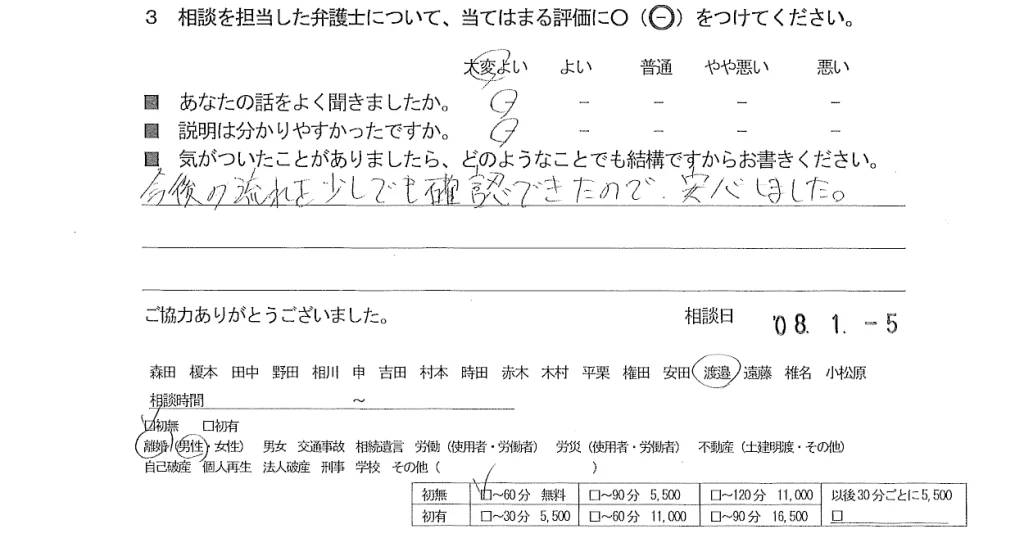 3 相談を担当した弁護士について、当てはまる評価に○(㊀)をつけてください。
大変よい よい 普通 やや悪い 悪い
■ あなたの話をよく聞きましたか。 － － － － －
■ 説明は分かりやすかったですか。 － － － － －
■ 気がついたことがありましたら、どのようなことでも結構ですからお書きください。
今後の流れを少しでも確認できたので、安心しました。
ご協力ありがとうございました。 相談日 '08. 1. -5
森田 榎本 田中 野田 相川 申 吉田 村本 時田 赤木 木村 平栗 権田 安田 渡邉 遠藤 椎名 小松原
相談時間 ～
☐初無 ☐初有
離婚(男性・女性) 男女 交通事故 相続遺言 労働(使用者・労働者) 労災(使用者・労働者) 不動産(土建明渡・その他)
自己破産 個人再生 法人破産 刑事 学校 その他( )
初無 ☐～60分 無料 ☐～90分 5,500 ☐～120分 11,000 以後30分ごとに5,500
初有 ☐～30分 5,500 ☐～60分 11,000 ☐～90分 16,500 ☐